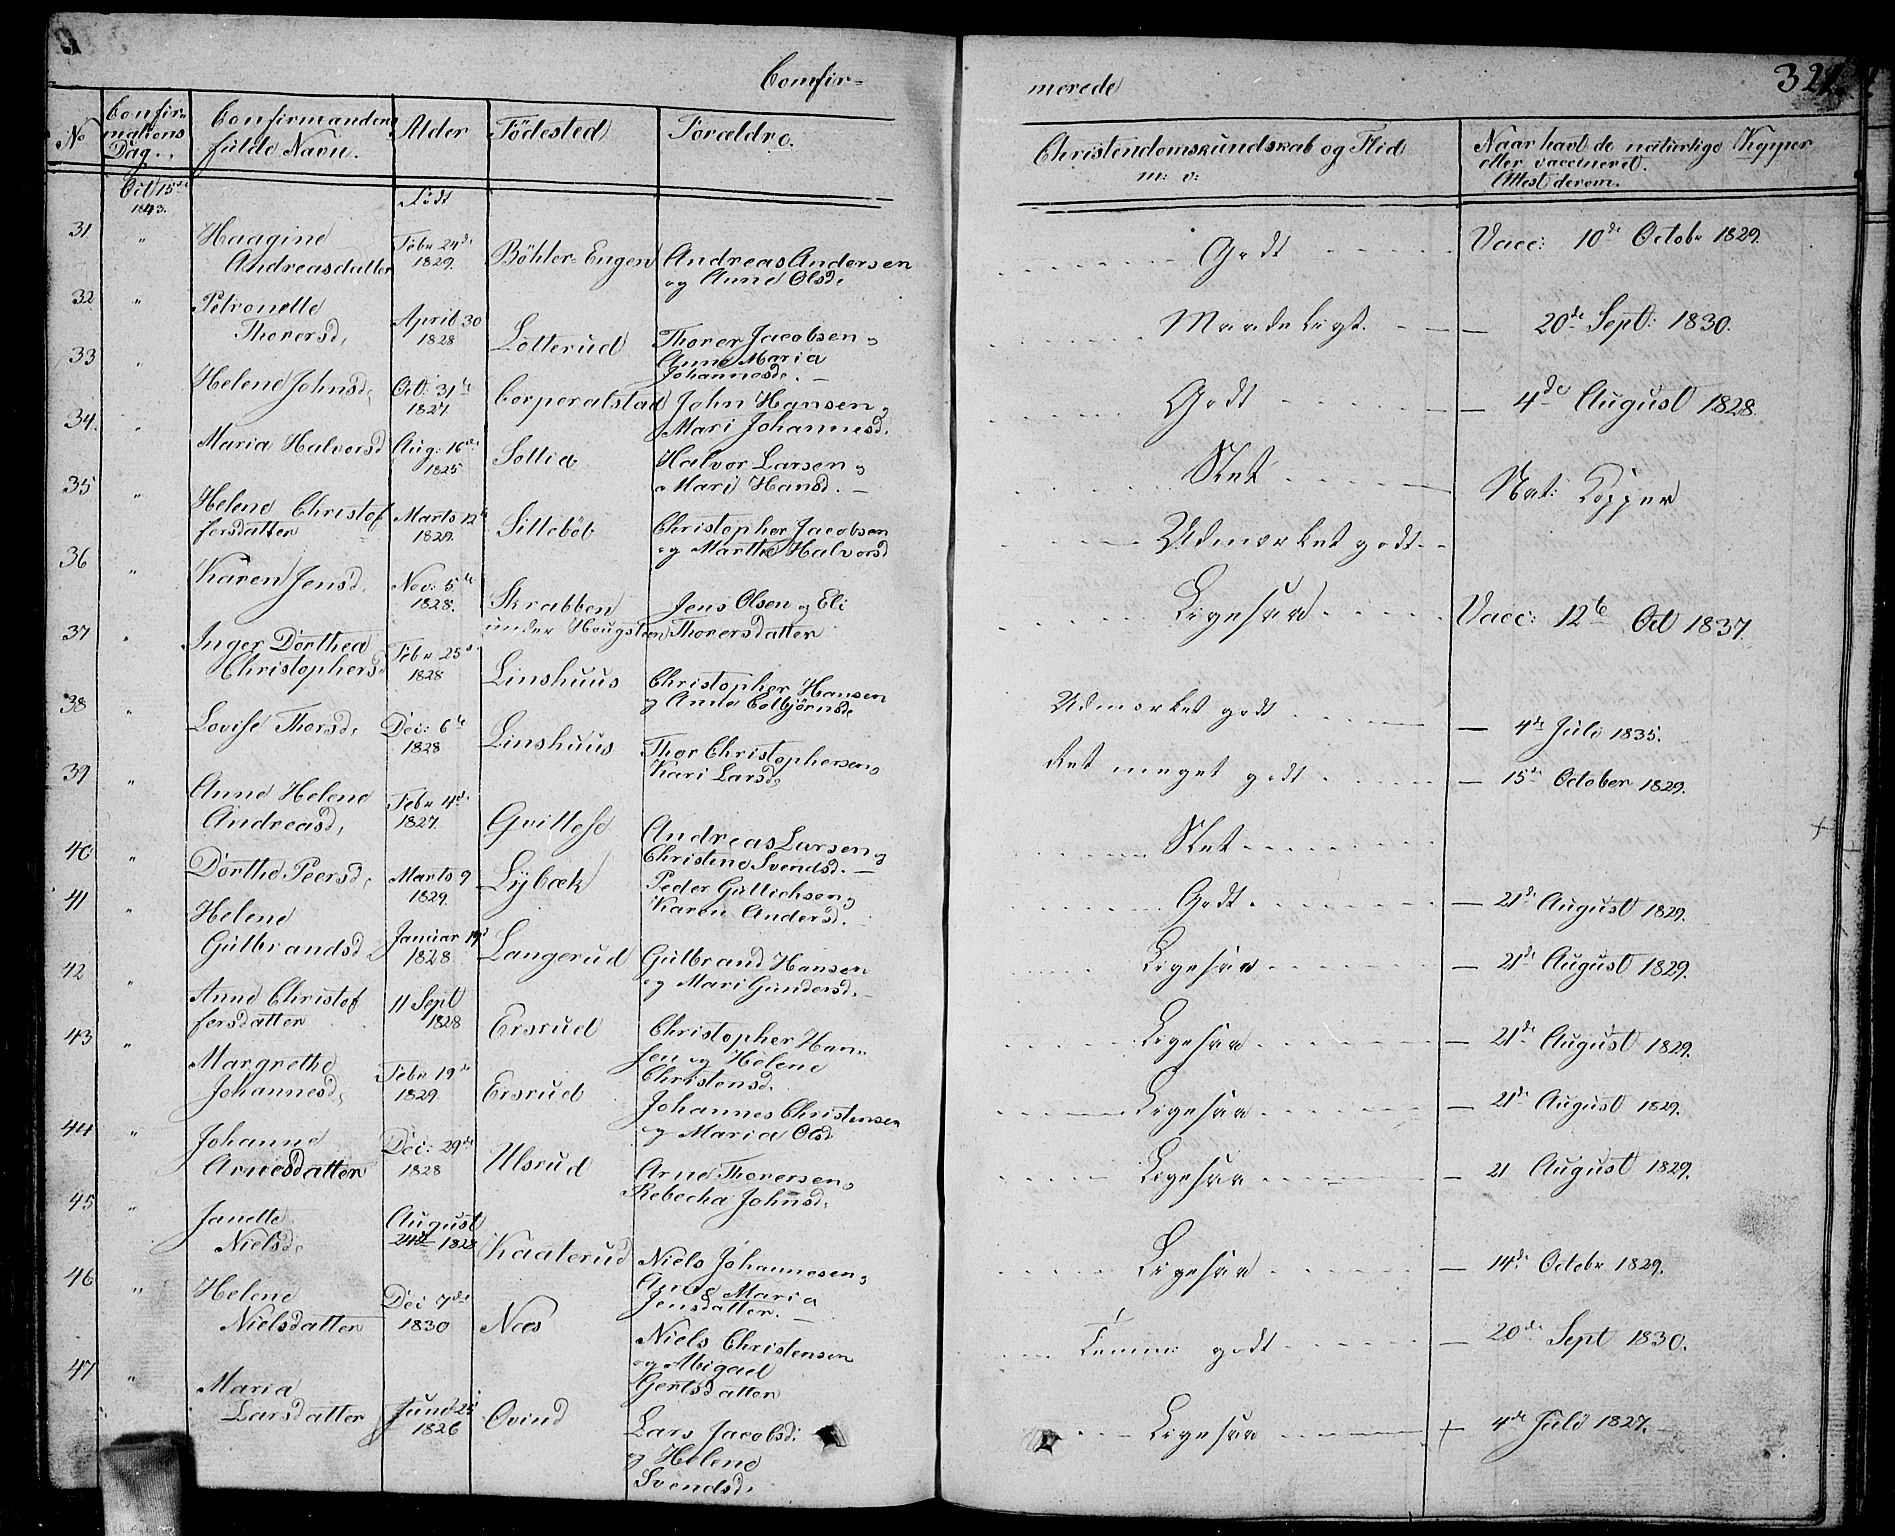 Comfir-
merede
No
Confir-
mations
Dag.
Confirmandens
fulde Navn.
Alder
Födested
Forældre.
Christendomskundskab og Flid
m: v:
Naar havt de naturlige Kopper
eller vaccineret.
Attest derom.
Oct 15de
1843.
Födt
31 " Haagine
Andreasdatter
Febr 24de
1829.
Böhler-Engen
Andreas Andersen
og Anne Olsd.
Godt
Vacc: 10de Octobr 1829.
32 " Petronelle
Thorersd.
April 30
1828
Lotterud
Thorer Jacobsen og
Anne Maria
Johannesd.
Maadeligt.
— 20de Sept: 1830.
33 " Helene Johnsd.
Oct: 31te
1827.
Corporalstad
John Hansen og
Mari Johannesd.
Godt
— 4de August 1828.
34. " Maria Halvorsd
Aug: 16de
1825
Sollia
Halvor Larsen og
Mari Hansd.
Slet
Nat: Kopper
35 " Helene Christof
fersdatter
Marts 12te
Silleböb
Christopher Jacobsen
og Marthe Halvorsd
Udmærket godt
36 " Karen Jensd.
Nov: 5te
1828.
Skrabben
under Hougsteen
Jens Olsen og Eli
Thorersdatter
Ligesaa
Vacc: 12te Oct 1837
37 " Inger Dorthea
Christophersd
Febr 25
1828
Linshuus
Christopher Hansen
og Anne Colbjörnsd.
Udmærket godt
— 4de Juli 1835.
38 " Lovise Thorsd.
Dec: 6te
1828
Linshuus
Thor Christophersen og
Kari Larsd.
Ret meget godt
— 15de October 1829.
39 " Anne Helene
Andreasd.
Febr 4de
1827.
Gvillese
Andreas Larsen og
Christine Svendsd.
Slet
40 " Dorthe Peersd.
Marts 9
1829.
Lybæk
Peder Gullichsen og
Karen Andersd.
Godt
— 21de August 1829.
41 " Helene
Gulbrandsd
Januar
1828
Langerud
Gulbrand Hansen
og Mari Gundersd.
Ligesaa
— 21de August 1829.
42 " Anne Christof
fersdatter
11 Sept
1828
Ersrud
Christopher Han-
sen og Helene
Christensd.
Ligesaa
— 21de August 1829.
43 " Margrethe
Johannesd.
Febr 19de
1829
Ersrud
Johannes Christensen
og Maria Olsd
Ligesaa
— 21de August 1829.
44 " Johanne
Arnesdatter
Dec: 29de
1828
Ulsrud
Arne Thorersen og
Rebecha Johnsd.
Ligesaa
— 21 August 1829.
45 " Janette
Nielsd.
August
24de 1828
Kaaterud
Niels Johannesen og
Anne Maria
Jensdatter.
Ligesaa
— 14de Octobr 1829.
46 " Helene
Nielsdatter
Dec 7de
1830
Næs
Niels Christensen
og Abigael
Gertsdatter
Temmel: godt
— 20de Sept 1830.
47 " Maria
Larsdatter
Juni 25
1826
Ovind
Lars Jacobsd:
og Helene
Svendsd.
Ligesaa
4de Juli 1827.